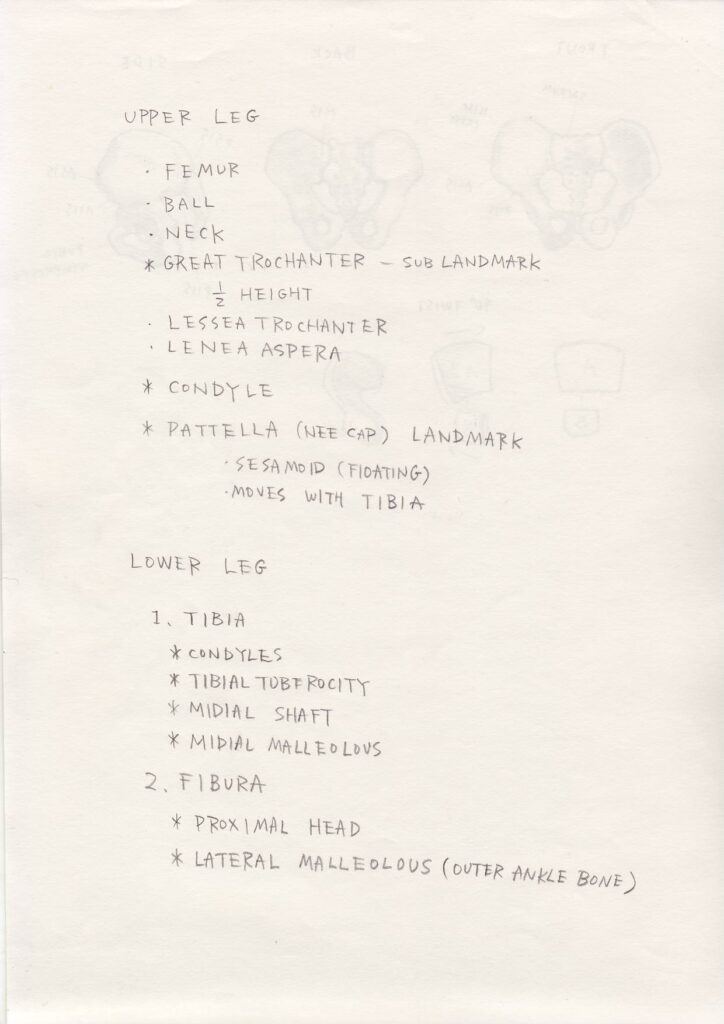 UPPER LEG
· FEMUR
· BALL
· NECK
* GREAT TROCHANTER – SUB LANDMARK
1/2 HEIGHT
· LESSEA TROCHANTER
· LENEA ASPERA
* CONDYLE
* PATTELLA (NEE CAP) LANDMARK
· SESAMOID (FlOATING)
· MOVES WITH TIBIA
LOWER LEG
1. TIBIA
* CONDYLES
* TIBIAL TUBEROCITY
* MIDIAL SHAFT
* MIDIAL MALLEOLOUS
2. FIBURA
* PROXIMAL HEAD
* LATERAL MALLEOLOUS (OUTER ANKLE BONE)